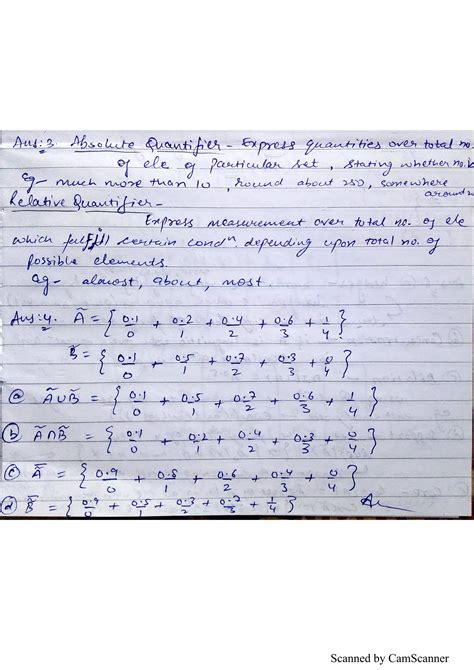 Ans:3. Absolute Quantifier - Express quantities over total no.
of ele of particular set, stating whether no. is
Eg - much more than 10, round about 250, somewhere
around
Relative Quantifier -
Express measurement over total no. of ele
which fulfill certain condⁿ depending upon total no. of
possible elements.
eg - almost, about, most.
Ans:4. Ã = { 0.1/0 + 0.2/1 + 0.4/2 + 0.6/3 + 1/4 }
B̃ = { 0.1/0 + 0.5/1 + 0.7/2 + 0.3/3 + 0/4 }
(a) Ã∪B̃ = { 0.1/0 + 0.5/1 + 0.7/2 + 0.6/3 + 1/4 }
(b) Ã∩B̃ = { 0.1/0 + 0.2/1 + 0.4/2 + 0.3/3 + 0/4 }
(c) Ā = { 0.9/0 + 0.8/1 + 0.6/2 + 0.4/3 + 0/4 }
(d) B̄ = { 0.9/0 + 0.5/1 + 0.3/2 + 0.7/3 + 1/4 }
Scanned by CamScanner